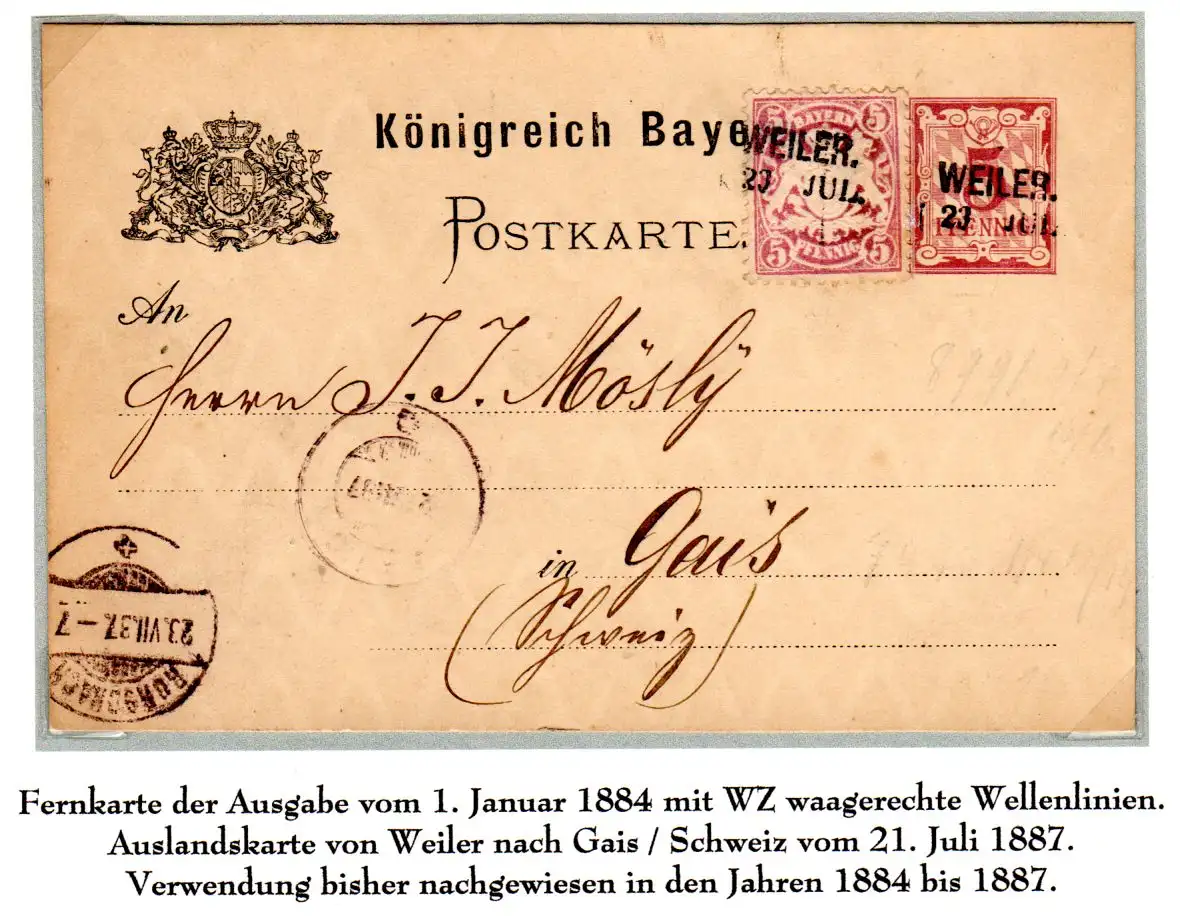 Königreich Baye
POSTKARTE.
5 BAYERN 5
5 PFENNIG 5
WEILER.
23 JUL.
5
WEILER.
23 JUL.
An
Herrn J. J. Mösly
in Gais
(Schweiz)
23.VII.87.–7
RORSCHACH
Fernkarte der Ausgabe vom 1. Januar 1884 mit WZ waagerechte Wellenlinien.
Auslandskarte von Weiler nach Gais / Schweiz vom 21. Juli 1887.
Verwendung bisher nachgewiesen in den Jahren 1884 bis 1887.